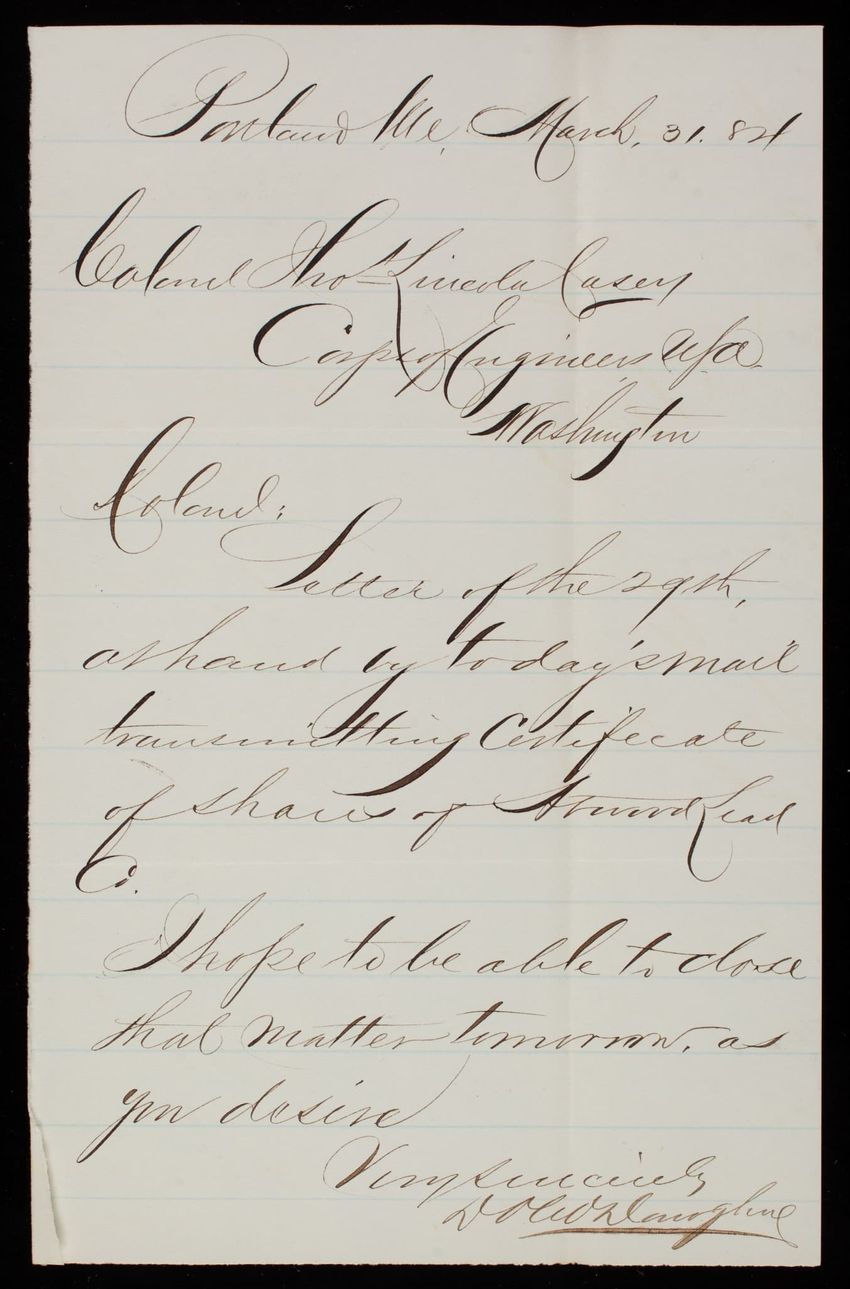 Portland Me, March, 31. 84
Colonel Thos Lincoln Casey
Corps of Engineers U.S.A.
Washington
Colonel:
Letter of the 29th,
at hand by to day's mail
transmitting Certificate
of shares of Lead
Co.
I hope to be able to close
that matter tomorrow, as
you desire
Very sincerely
O'Donoghue